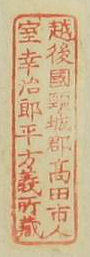 越後國頸城郡高田市人
室孝治郎平方義所藏